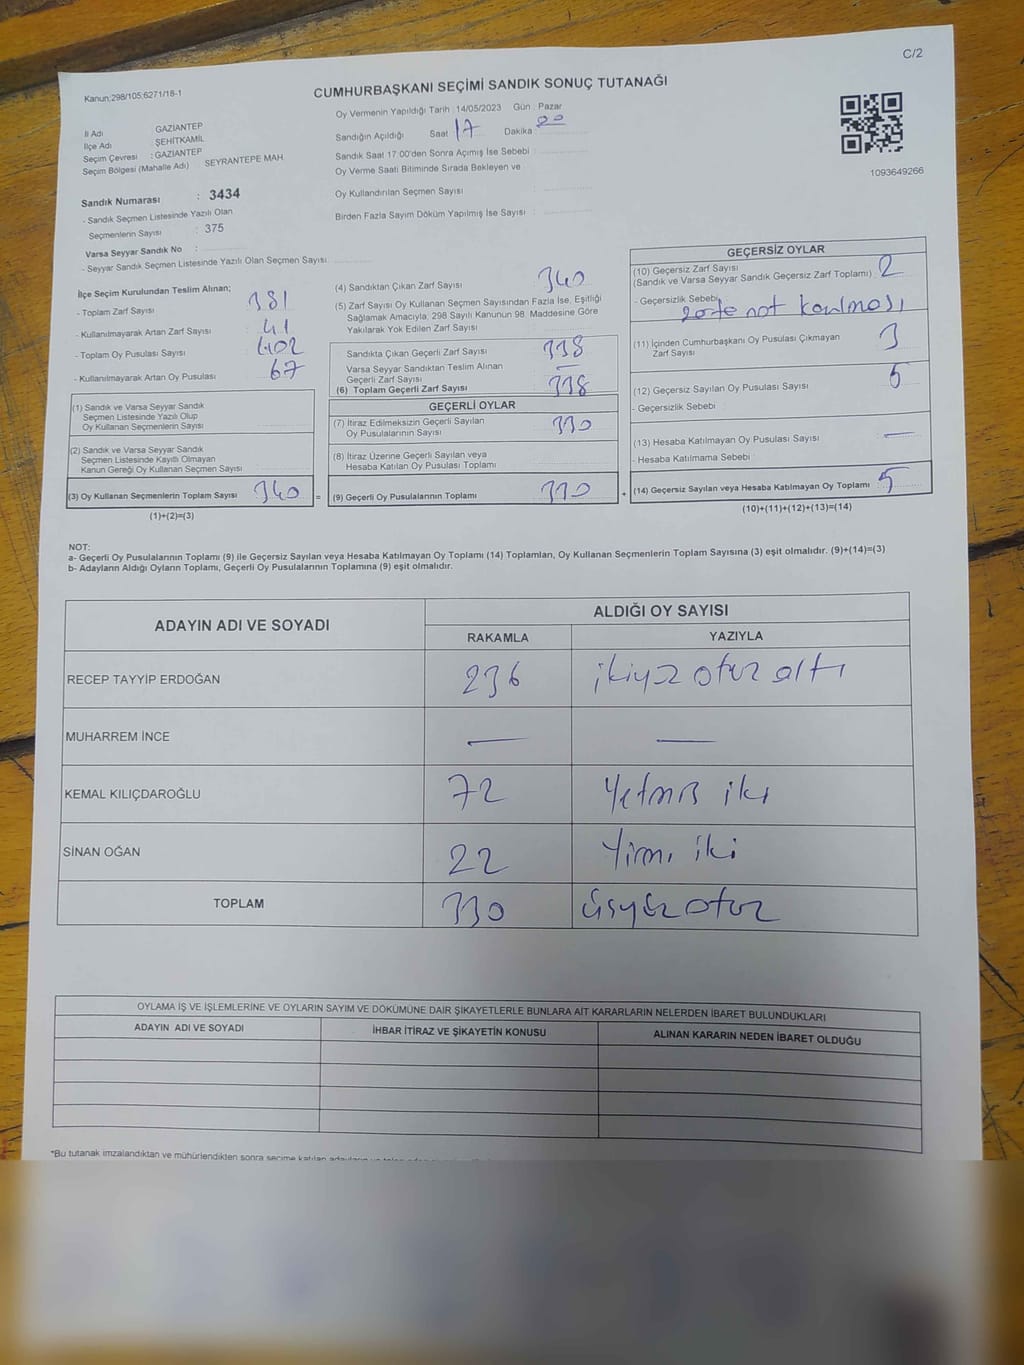 C/2
Kanun:298/105;6271/18-1
CUMHURBAŞKANI SEÇİMİ SANDIK SONUÇ TUTANAĞI
İl Adı GAZİANTEP
İlçe Adı ŞEHİTKAMİL
Seçim Çevresi : GAZİANTEP
Seçim Bölgesi (Mahalle Adı) SEYRANTEPE MAH.
Sandık Numarası : 3434
- Sandık Seçmen Listesinde Yazılı Olan
Seçmenlerin Sayısı : 375
Varsa Seyyar Sandık No :
- Seyyar Sandık Seçmen Listesinde Yazılı Olan Seçmen Sayısı
Oy Vermenin Yapıldığı Tarih : 14/05/2023 Gün : Pazar
Sandığın Açıldığı Saat 17 Dakika 00
Sandık Saat 17:00'den Sonra Açılmış İse Sebebi :
Oy Verme Saati Bitiminde Sırada Bekleyen ve
Oy Kullandırılan Seçmen Sayısı :
Birden Fazla Sayım Döküm Yapılmış İse Sayısı :
1093649266
İlçe Seçim Kurulundan Teslim Alınan;
- Toplam Zarf Sayısı : 381
- Kullanılmayarak Artan Zarf Sayısı : 41
- Toplam Oy Pusulası Sayısı : 402
- Kullanılmayarak Artan Oy Pusulası : 67
(1) Sandık ve Varsa Seyyar Sandık
Seçmen Listesinde Yazılı Olup
Oy Kullanan Seçmenlerin Sayısı
(2) Sandık ve Varsa Seyyar Sandık
Seçmen Listesinde Kayıtlı Olmayan
Kanun Gereği Oy Kullanan Seçmen Sayısı
(3) Oy Kullanan Seçmenlerin Toplam Sayısı 340 =
(1)+(2)=(3)
(4) Sandıktan Çıkan Zarf Sayısı : 340
(5) Zarf Sayısı Oy Kullanan Seçmen Sayısından Fazla İse, Eşitliği
Sağlamak Amacıyla, 298 Sayılı Kanunun 98. Maddesine Göre
Yakılarak Yok Edilen Zarf Sayısı :
Sandıkta Çıkan Geçerli Zarf Sayısı 338
Varsa Seyyar Sandıktan Teslim Alınan
Geçerli Zarf Sayısı —
(6) Toplam Geçerli Zarf Sayısı 338
GEÇERLİ OYLAR
(7) İtiraz Edilmeksizin Geçerli Sayılan
Oy Pusulalarının Sayısı 330
(8) İtiraz Üzerine Geçerli Sayılan veya
Hesaba Katılan Oy Pusulası Toplamı
(9) Geçerli Oy Pusulalarının Toplamı 330 +
GEÇERSİZ OYLAR
(10) Geçersiz Zarf Sayısı
(Sandık ve Varsa Seyyar Sandık Geçersiz Zarf Toplamı) 2
- Geçersizlik Sebebi not konulması
(11) İçinden Cumhurbaşkanı Oy Pusulası Çıkmayan
Zarf Sayısı 3
(12) Geçersiz Sayılan Oy Pusulası Sayısı 5
- Geçersizlik Sebebi :
(13) Hesaba Katılmayan Oy Pusulası Sayısı —
- Hesaba Katılmama Sebebi :
(14) Geçersiz Sayılan veya Hesaba Katılmayan Oy Toplamı 5
(10)+(11)+(12)+(13)=(14)
NOT:
a- Geçerli Oy Pusulalarının Toplamı (9) ile Geçersiz Sayılan veya Hesaba Katılmayan Oy Toplamı (14) Toplamları, Oy Kullanan Seçmenlerin Toplam Sayısına (3) eşit olmalıdır. (9)+(14)=(3)
b- Adayların Aldığı Oyların Toplamı, Geçerli Oy Pusulalarının Toplamına (9) eşit olmalıdır.
ADAYIN ADI VE SOYADI ALDIĞI OY SAYISI
RAKAMLA YAZIYLA
RECEP TAYYİP ERDOĞAN 236 ikiyüz otuz altı
MUHARREM İNCE — —
KEMAL KILIÇDAROĞLU 72 Yetmiş iki
SİNAN OĞAN 22 Yirmi iki
TOPLAM 330 üçyüz otuz
OYLAMA İŞ VE İŞLEMLERİNE VE OYLARIN SAYIM VE DÖKÜMÜNE DAİR ŞİKAYETLERLE BUNLARA AİT KARARLARIN NELERDEN İBARET BULUNDUKLARI
ADAYIN ADI VE SOYADI İHBAR İTİRAZ VE ŞİKAYETİN KONUSU ALINAN KARARIN NEDEN İBARET OLDUĞU
*Bu tutanak imzalandıktan ve mühürlendikten sonra seçime katılan adayların